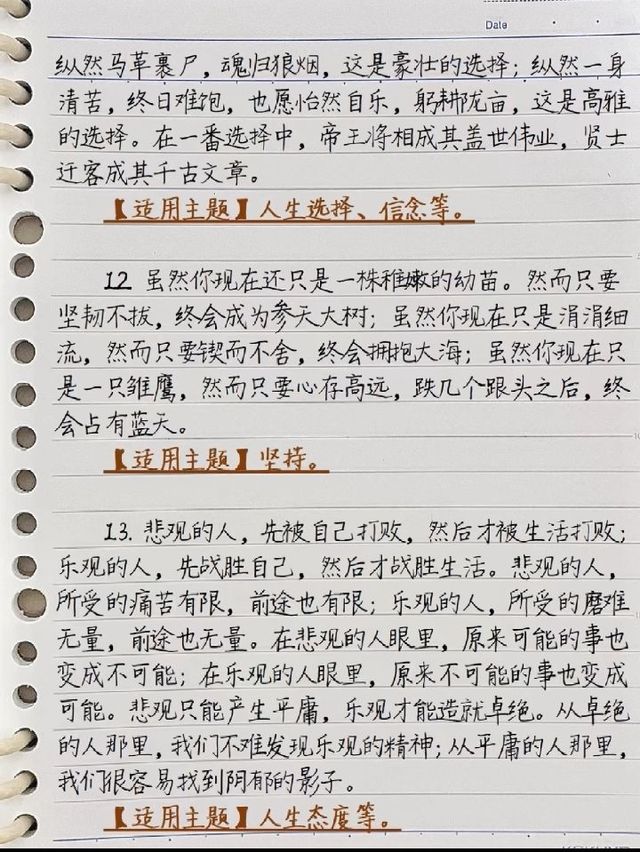 Date
纵然马革裹尸，魂归狼烟，这是豪壮的选择；纵然一身
清苦，终日难饱，也愿怡然自乐，躬耕陇亩，这是高雅
的选择。在一番选择中，帝王将相成其盖世伟业，贤士
迁客成其千古文章。
【适用主题】人生选择、信念等。
12 虽然你现在还只是一株稚嫩的幼苗。然而只要
坚韧不拔，终会成为参天大树；虽然你现在只是涓涓细
流，然而只要锲而不舍，终会拥抱大海；虽然你现在只
是一只雏鹰，然而只要心存高远，跌几个跟头之后，终
会占有蓝天。
【适用主题】坚持。
13. 悲观的人，先被自己打败，然后才被生活打败；
乐观的人，先战胜自己，然后才战胜生活。悲观的人，
所受的痛苦有限，前途也有限；乐观的人，所受的磨难
无量，前途也无量。在悲观的人眼里，原来可能的事也
变成不可能；在乐观的人眼里，原来不可能的事也变成
可能。悲观只能产生平庸，乐观才能造就卓绝。从卓绝
的人那里，我们不难发现乐观的精神；从平庸的人那里，
我们很容易找到阴郁的影子。
【适用主题】人生态度等。